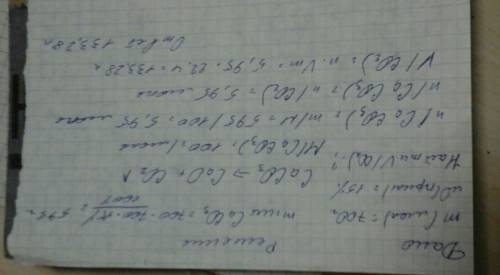 Дано Решение
m(изв) = 700г m чис CaCO₃ = 700 - 700 · 15% / 100% = 595 г
ω(прим) = 15% CaCO₃ → CaO + CO₂↑
Найти V(CO₂) - ? M(CaCO₃) = 100 г/моль
n(CaCO₃) = m/M = 595/100 = 5,95 моль
n(CaCO₃) = n(CO₂) = 5,95 моль
V(CO₂) = n · Vm = 5,95 · 22,4 = 133,28л
Ответ 133,28л